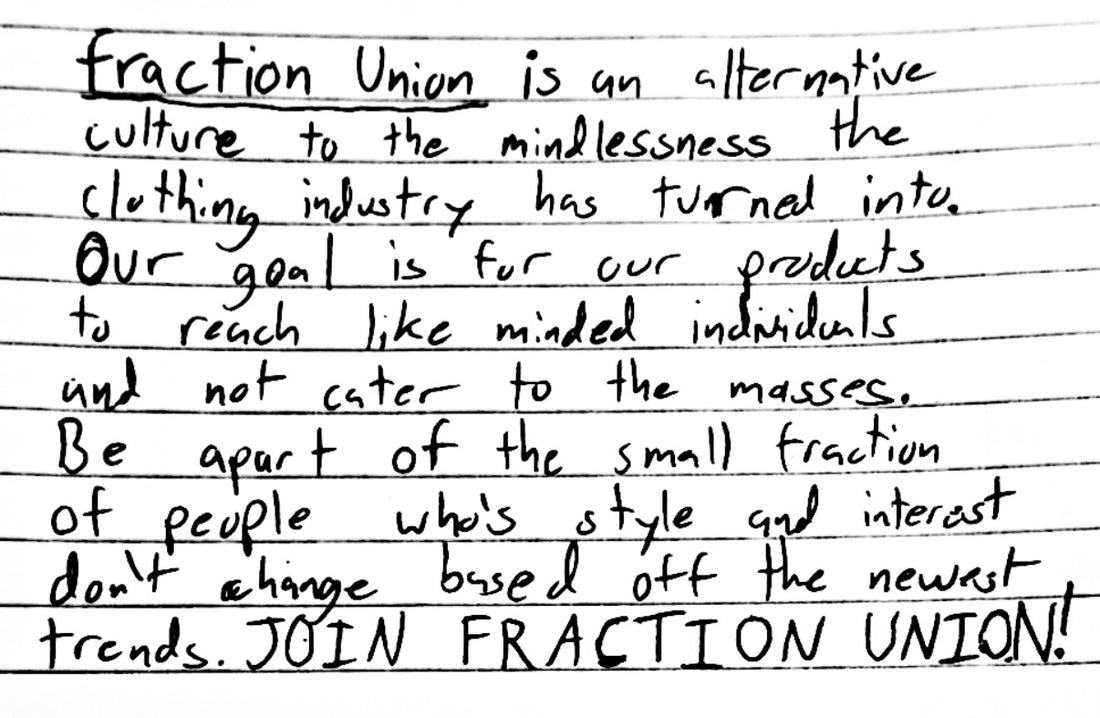 fraction Union is an alternative
culture to the mindlessness the
clothing industry has turned into.
Our goal is for our products
to reach like minded individuals
and not cater to the masses.
Be apart of the small fraction
of people who's style and interest
don't change based off the newest
trends. JOIN FRACTION UNION!